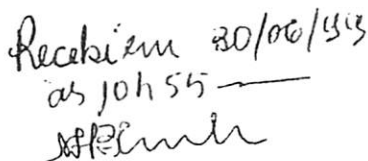 Recebi em 30/06/99
às 10h55